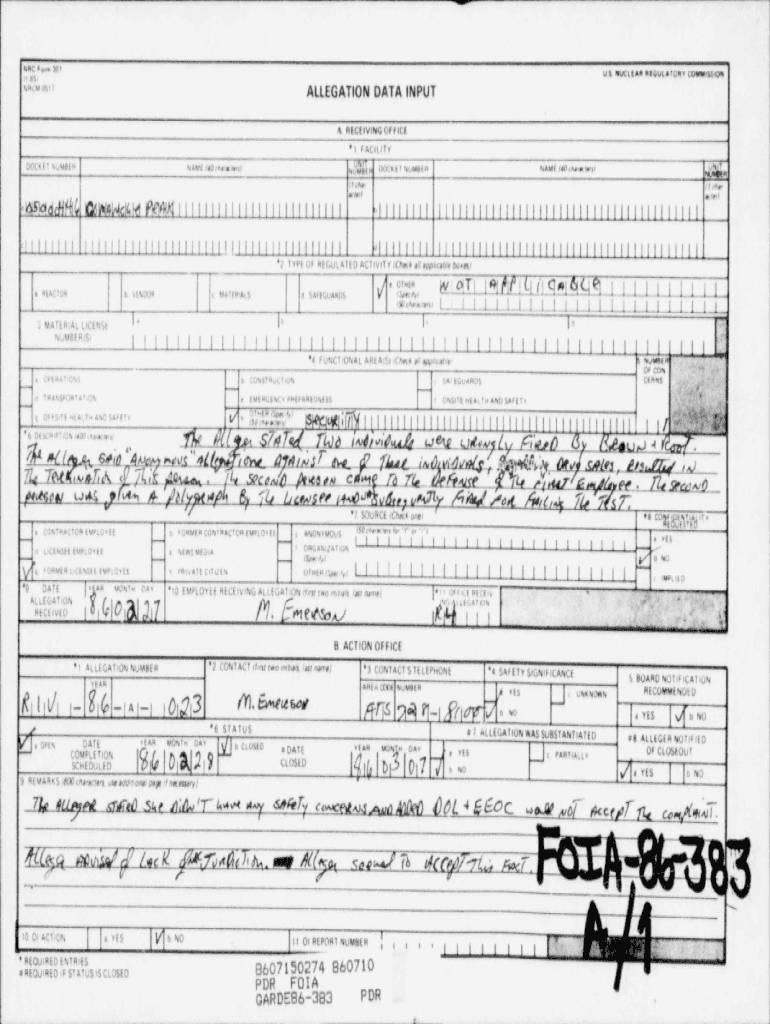 NRC Form 307
(1-85)
NRCM 0517
U.S. NUCLEAR REGULATORY COMMISSION
ALLEGATION DATA INPUT
A. RECEIVING OFFICE
*1. FACILITY
DOCKET NUMBER NAME (40 characters) UNIT NUMBER DOCKET NUMBER NAME (40 characters) UNIT NUMBER
PEAK
*2 TYPE OF REGULATED ACTIVITY (Check all applicable boxes)
a. REACTOR b. VENDOR c. MATERIALS d. SAFEGUARDS ✓ e. OTHER (Specify) (50 characters) NOT APPLICABLE
3. MATERIAL LICENSE NUMBER(S) a. b. c. d.
*4. FUNCTIONAL AREA(S) (Check all applicable) 5. NUMBER OF CONCERNS
a. OPERATIONS b. CONSTRUCTION c. SAFEGUARDS
d. TRANSPORTATION e. EMERGENCY PREPAREDNESS f. ONSITE HEALTH AND SAFETY
g. OFFSITE HEALTH AND SAFETY ✓ h. OTHER (Specify) (50 characters) SECURITY 1
*6 DESCRIPTION (400 characters) The Alleger STATED TWO individuals were wrongly FIRED By BROWN + Root.
The Alleger SAID "ANONYMOUS" allegations AGAINST one of These individuals, Regarding DRUG SALES, RESULTED IN
The TERMINATION of This person. The SECOND PERSON CAME TO The Defense of The FIRST Employee. The SECOND
PERSON WAS given A Polygraph By The Licensee AND SUBSEQUENTLY FIRED FOR FAILING The TEST.
*7. SOURCE (Check one) *8 CONFIDENTIALITY REQUESTED
a. CONTRACTOR EMPLOYEE b. FORMER CONTRACTOR EMPLOYEE c. ANONYMOUS (50 characters for "f" or "i") a. YES
d. LICENSEE EMPLOYEE e. NEWS MEDIA f. ORGANIZATION (Specify) ✓ b. NO
✓ g. FORMER LICENSEE EMPLOYEE h. PRIVATE CITIZEN OTHER (Specify) c. IMPLIED
*9 DATE ALLEGATION RECEIVED YEAR MONTH DAY 86 02 27 *10 EMPLOYEE RECEIVING ALLEGATION (first two initials, last name) M. EMERSON *11 OFFICE RECEIVING ALLEGATION R4
B. ACTION OFFICE
*1. ALLEGATION NUMBER *2 CONTACT (first two initials, last name) *3 CONTACT'S TELEPHONE *4 SAFETY SIGNIFICANCE 5. BOARD NOTIFICATION RECOMMENDED
YEAR AREA CODE NUMBER a. YES c. UNKNOWN
RIV - 86 - A - 023 M. EMERSON FTS 728-8100 ✓ b. NO a. YES ✓ b. NO
*6 STATUS #7. ALLEGATION WAS SUBSTANTIATED #8. ALLEGER NOTIFIED OF CLOSEOUT
✓ a. OPEN DATE COMPLETION SCHEDULED YEAR MONTH DAY 86 02 28 ✓ b. CLOSED #DATE CLOSED YEAR MONTH DAY 86 03 07 a. YES ✓ b. NO c. PARTIALLY ✓ a. YES b. NO
9. REMARKS (800 characters, use additional page if necessary)
The Alleger STATED She DIDN'T have ANY SAFETY CONCERNS, AND ADDED DOL + EEOC would NOT ACCEPT The COMPLAINT.
Alleger ADVISED of LACK of Alleger seemed To ACCEPT This FACT.
FOIA-86-383
A/1
10. OI ACTION a. YES ✓ b. NO 11. OI REPORT NUMBER
* REQUIRED ENTRIES
# REQUIRED IF STATUS IS CLOSED
8607150274 860710
PDR FOIA
GARDE86-383 PDR